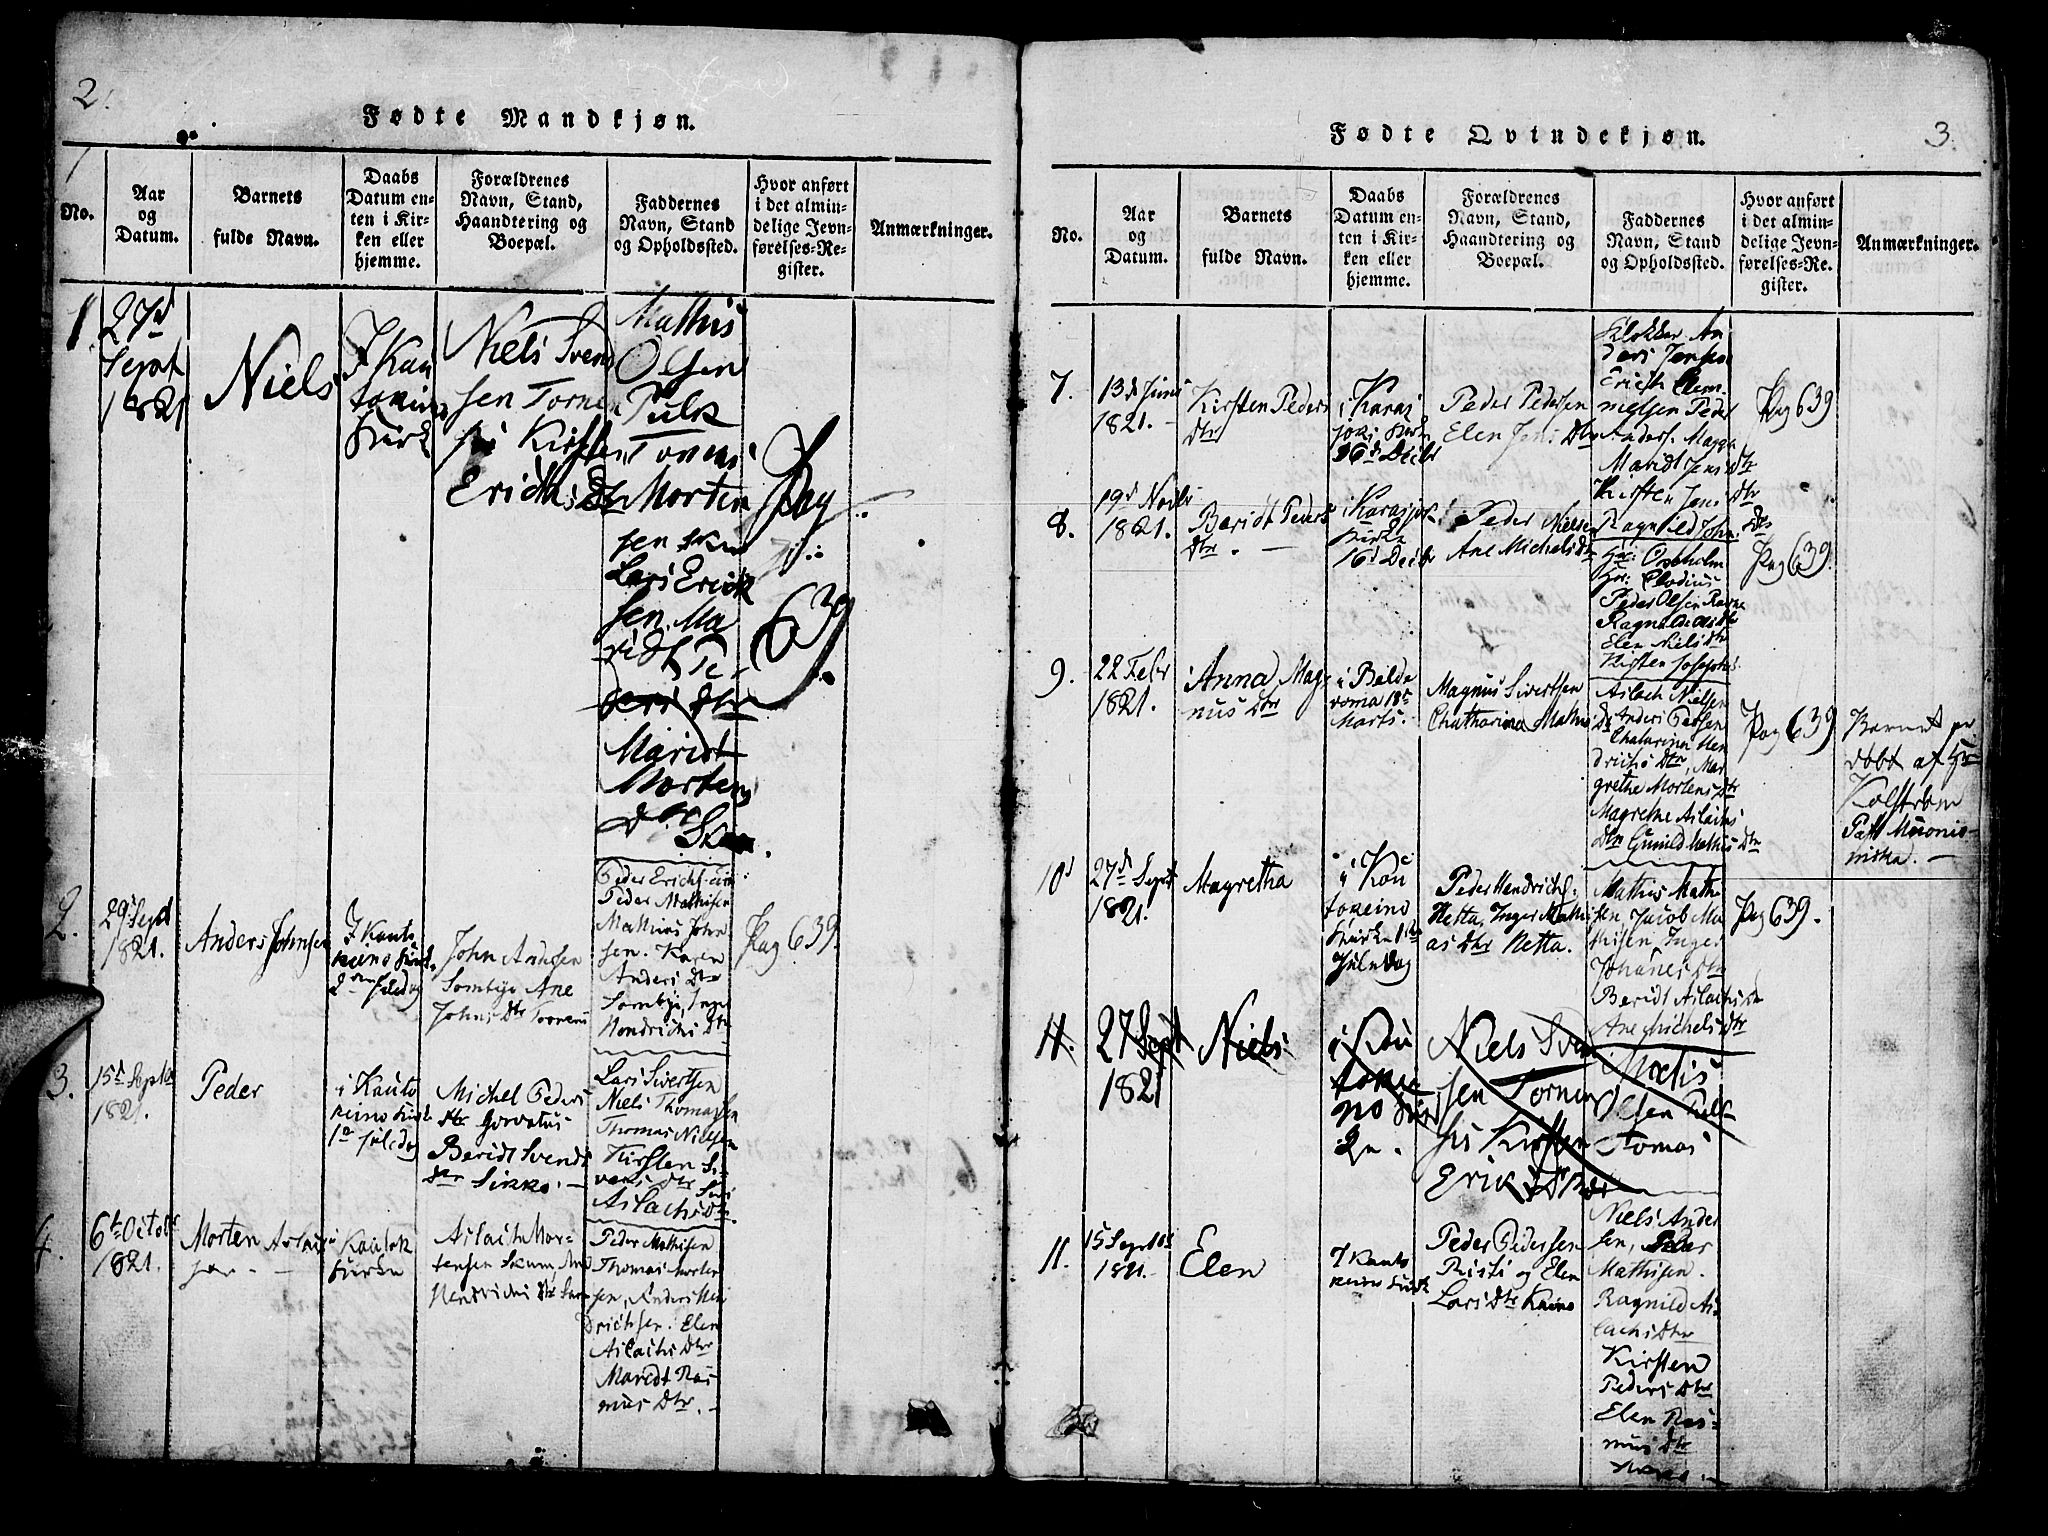 2.
Fødte Mandkjøn.
No.
Aar
og
Datum.
Barnets
fulde Navn.
Daabs
Datum en-
ten i Kir-
ken eller
hjemme.
Forældrenes
Navn, Stand,
Haandtering og
Boepæl.
Faddernes
Navn, Stand
og Opholdssted.
Hvor anført
i det almin-
delige Jevn-
førelses-Re-
gister.
Anmærkninger.
1.
27d
Sept
1821
Niels
I Kau
tokino
Kirk
Niels Svend
sen Tornen
sis Kirsten
Erichs Dtr
Mathis
Olsen
Pulk
Tornensis
Morten
sen Skum
Lars Erick
sen. Ma
ridt Pe-
ders Dtr
Maridt
Mortens
dtr
Pag
639
2.
29d Sept
1821.
Anders Johnsen
I Kauto
keino Kirk
2den Juledag
John Andersen
Somby Ane
Johns Dtr
Peder Erichs
Peder Mathisen
Mathias John
sen. Karen
Anders Dtr
Somby, Inger
Hendrichs Dtr
Pag 639.
3.
15d Septbr
1821.
Peder
i Kauto
keino Kirk
1ste Juledag
Michel Peders
Beridt Svends
Dtr Sikko. —
Lars Sivertsen
Niels Thomassen
Thomas Nielsen
Kirsten Si-
vers Dtr
Aslachs Dtr.
4.
6te Octobr
1821.
Morten Aslach
sen. —
i Kautok
Kirke
Aslach Mor-
tensen Skum, And
Hendrichs Dtr
Peder Mathisen
Thomas Morten
sen, Anders Hen
drichsen. Elen
Aslachs Dtr
Maridt Ras-
mus Dtr. —
3.
Fødte Qvindekjøn.
No.
Aar
og
Datum.
Barnets
fulde Navn.
Daabs
Datum en-
ten i Kir-
ken eller
hjemme.
Forældrenes
Navn, Stand,
Haandtering og
Boepæl.
Faddernes
Navn, Stand
og Opholdssted.
Hvor anført
i det almin-
delige Jevn-
førelses-Re-
gister.
Anmærkninger.
7.
13d Juni
1821. —
Kirsten Peders
Dtr
i Karas
joki Kirk
16d Decbr
Peder Pedersen
Elen Jens Dtr
Klokker An
ders Jensen
Erich Clem.
nielsen Peder
Anders. Magga
Maridt Jens Dtr
Kirsten Jens Dtr
Pag 639
8.
19d Novbr
1821.
Beridt Peders
Dtr. —
i Karasjok
Kirke
16d Decbr
Peder Nielsen
Ane Michels Dtr
Ragnild Johnsdtr
Hr: Oxholm
Hr: Clodius
Peder Olsen Ravne
Ragnild Ols Dtr
Elen Niels Dtr
Kirsten Josephs
Pag 639.
9.
22 Febr
1821.
Anna Mag-
nus Dtr
i Beldo
voma 18de
Marts.
Magnus Sivertsen
Chatharina Mathis Dtr
Aslach Nielsen
Anders Persen
Chatarina Hen
drichs Dtr, Mar
grethe Mortens Dtr
Magrethe Aslachs
Dtr Gunild Mathis Dtr
Pag 639
Barnet er
døbt af Hr
Kolstrøm
Past Muonio-
niska. —
10d
27d Sept
1821.
Magretha
i Kau
tokeino
Kirke 1ste
Juledag
Peder Hendrichs.
Netta, Inger Mathi
as Dtr Netta.
Mathis Mathi
sen Jacob Ma
thisen, Inger
Johanes Dtr
Beridt Aslachs Dtr
Ane Michels Dtr
Pag 639.
11.
27 Sept
1821
Niels
i Kau
tokei
no Kir
ke.
Niels Svend
sen Tornen
sis Kirsten
Ericks Dtr
Mathis
Olsen Pulk
Tornensis
11.
15 Septbr
1821. —
Elen
I Kauto
keino Kirk
Peder Pedersen
Risti og Elen
Lars Dtr Kaino
Niels Ander
sen, Peder
Mathisen.
Ragnild As
lachs Dtr
Kirsten
Peders Dtr
Elen Ras-
mus Dtr